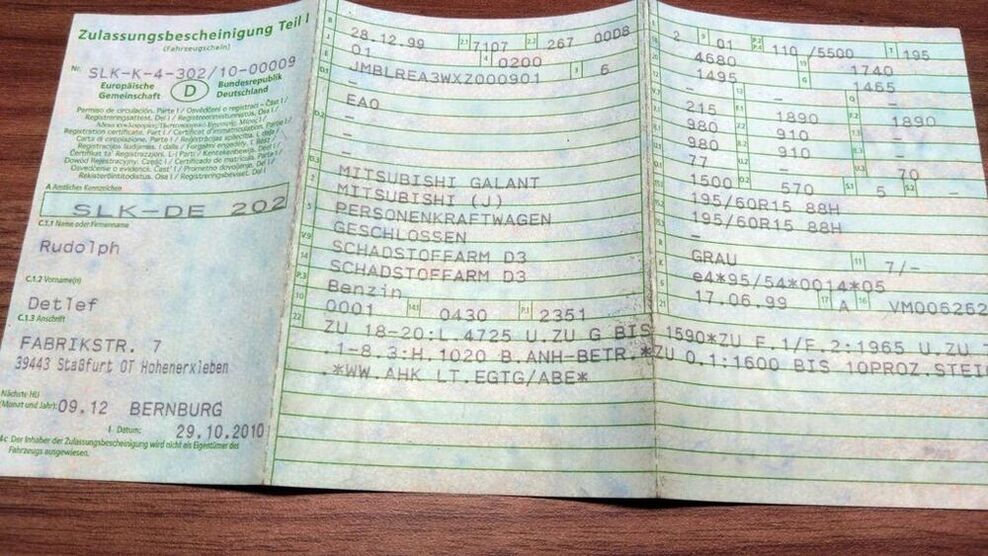 Zulassungsbescheinigung Teil I
(Fahrzeugschein)
Nr. SLK-K-4-302/10-00009
Europäische Gemeinschaft D Bundesrepublik Deutschland
Permiso de circulación. Parte I / Osvědčení o registraci – Část I /
Registreringsattest. Del I / Registreerimistunnistus. Osa I /
Registration certificate. Part I / Certificat d'immatriculation. Partie I /
Carta di circolazione. Parte I / Reģistrācijas apliecība. I. daļa /
Registracijos liudijimas. I dalis / Forgalmi engedély. I. Rész /
Dowód Rejestracyjny. Część I / Certificado de matrícula. Parte I /
Osvedčenie o evidencii. Časť I / Prometno dovoljenje. Del I /
Rekisteröintitodistus. Osa I / Registreringsbeviset. Del I
A Amtliches Kennzeichen
SLK-DE 202
C.1.1 Name oder Firmenname
Rudolph
C.1.2 Vorname(n)
Detlef
C.1.3 Anschrift
FABRIKSTR. 7
39443 Staßfurt OT Hohenerxleben
Nächste HU
(Monat und Jahr): 09.12 BERNBURG
I Datum: 29.10.2010
4c Der Inhaber der Zulassungsbescheinigung wird nicht als Eigentümer des
Fahrzeugs ausgewiesen.
B 28.12.99 2.1 7107 2.2 267 0008
J 01 4 0200
E JMBLREA3WXZ000901 3 6
D.1 –
EA0
D.2 –
–
D.3 MITSUBISHI GALANT
2 MITSUBISHI (J)
5 PERSONENKRAFTWAGEN
GESCHLOSSEN
V.9 SCHADSTOFFARM D3
14 SCHADSTOFFARM D3
P.3 Benzin
10 0001 14.1 0430 P.1 2351
22 ZU 18-20:L.4725 U.ZU G BIS 1590*ZU F.1/F.2:1965 U.ZU 7
.1-8.3:H.1020 B.ANH-BETR.*ZU O.1:1600 BIS 10PROZ.STEI
.*WW.AHK LT.EGTG/ABE*
L 2 9 01 P.2 P.4 110 /5500 T 195
18 4680 19 1740
20 1495 G 1465
– – –
V.7 215 F.1 1890 F.2 1890
7.1 980 7.2 910 7.3 –
8.1 980 8.2 910 8.3 –
U.1 77 U.2 – U.3 70
O.1 1500 O.2 570 S.1 5 S.2 –
195/60R15 88H
195/60R15 88H
–
R GRAU 11 7/–
K e4*95/54*0014*05
6 17.06.99 17 A 16 VM006262
21